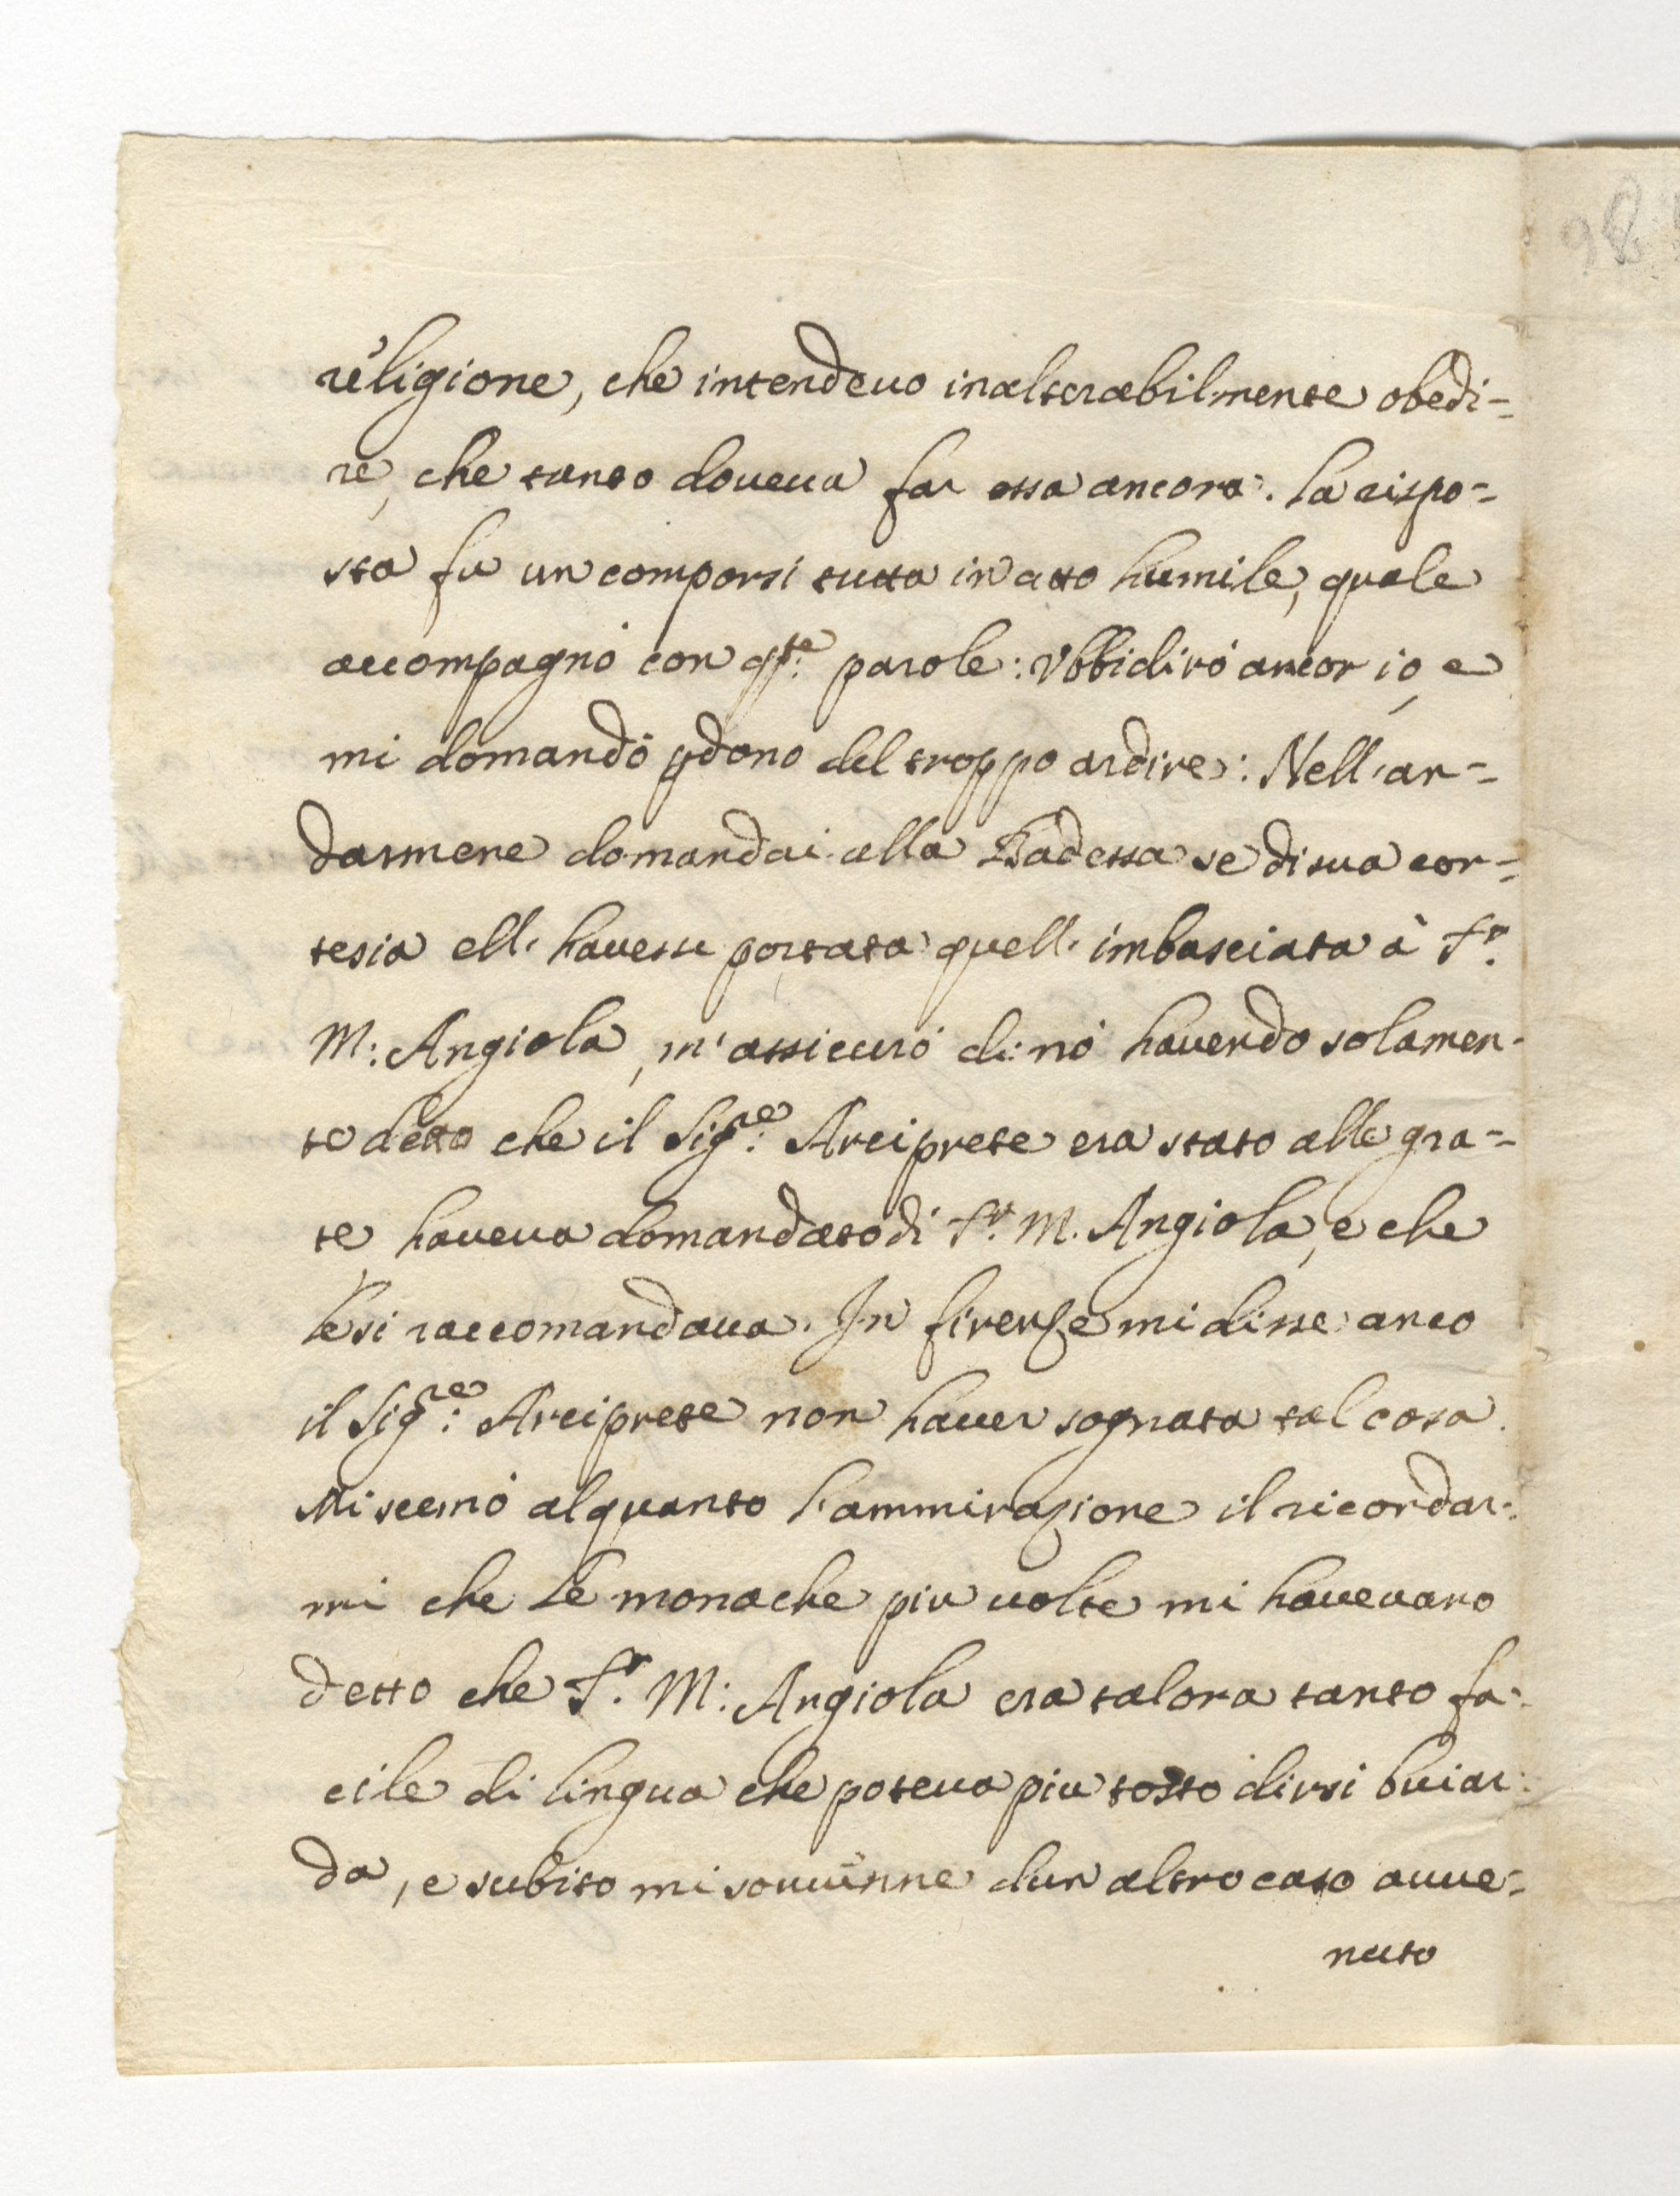 religione, che intendeuo inalterabilmente obedi=
re, che tanto doueua far essa ancora. la rispo=
sta fu un comporsi tutta in atto humile, quale
accompagnò con q.ste parole: Vbbidirò ancor io, e
mi domandò pdono del troppo ardire: Nell'an=
darmene domandai alla Badessa se di sua cor=
tesia ell' hauesse portata quell' imbasciata à Sr.
M: Angiola, m'assicurò di nò hauendo solamen=
te detto che il Sig.re: Arciprete era stato alle gra=
te, haueua domandato di Sr. M. Angiola, e che
le si raccomandaua. In firenze mi disse anco
il Sig.re: Arciprete non hauer sognata tal cosa.
Mi scemò alquanto l'ammirazione il ricordar=
mi che le monache piu uolte mi haueuano
detto che Sr. M: Angiola era talora tanto fa=
cile di lingua che poteua piu tosto dirsi buiar=
da, e subito mi souuenne d'un altro caso auue=
nuto
98